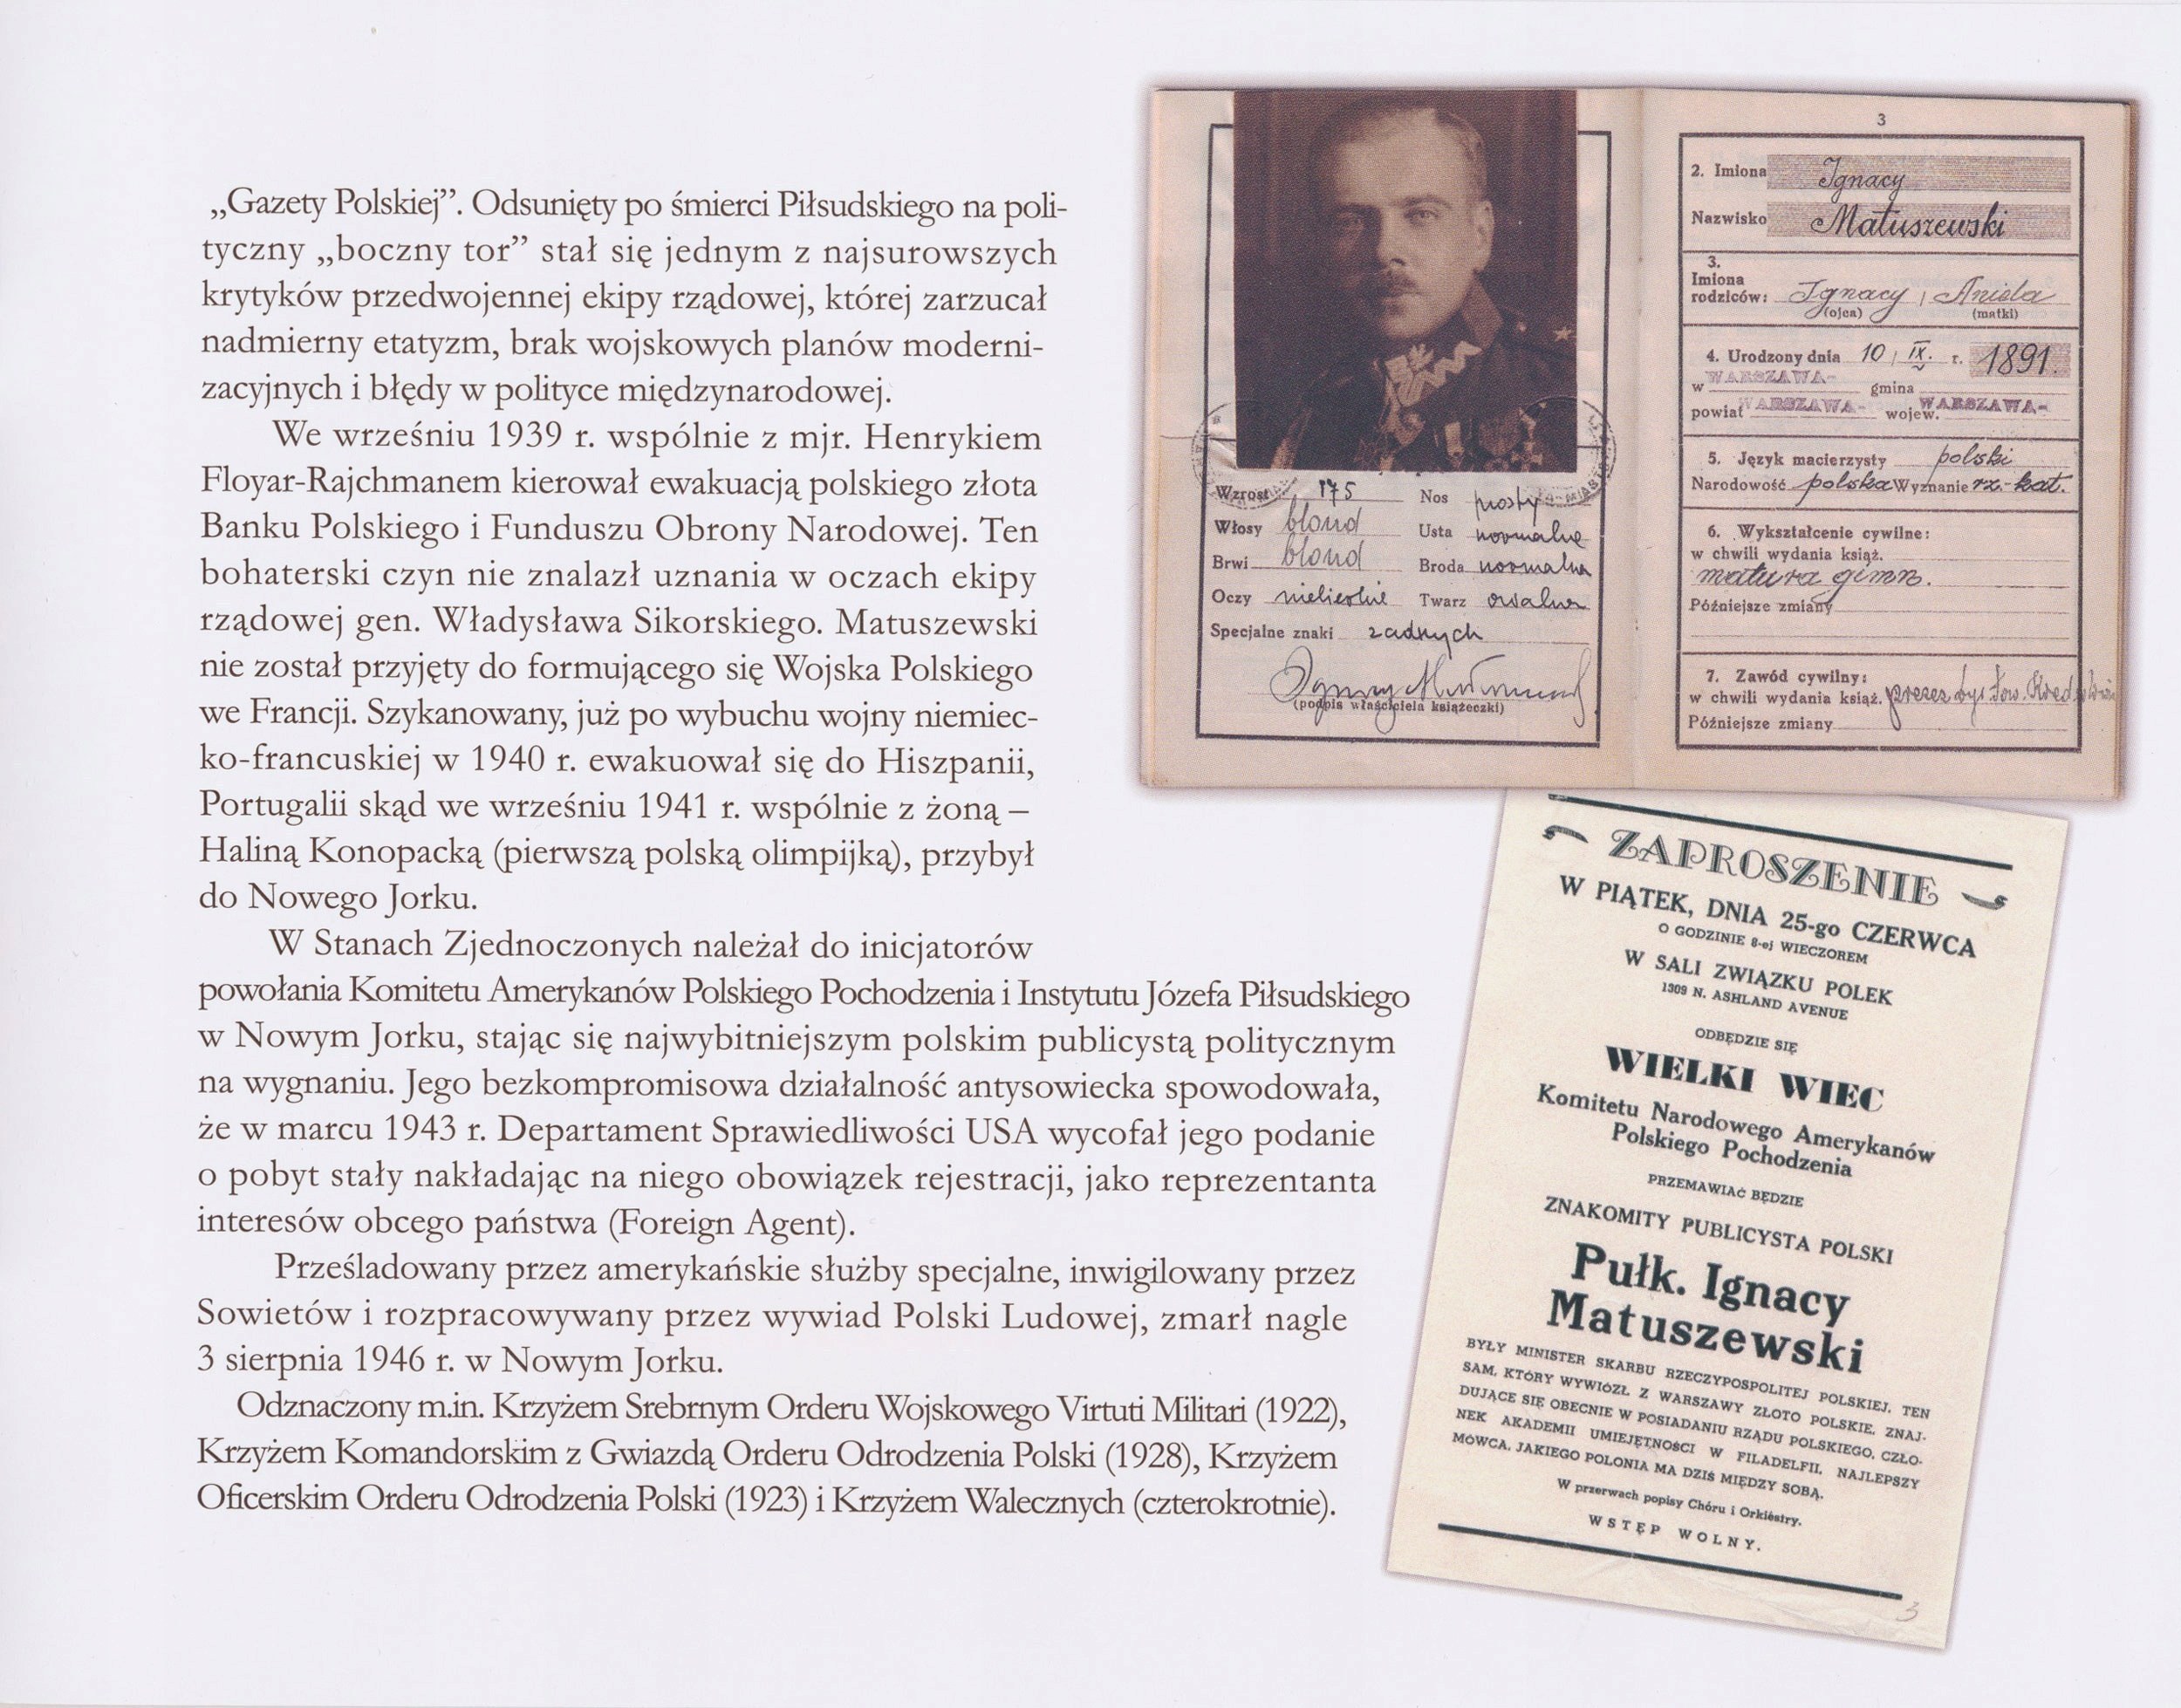 „Gazety Polskiej”. Odsunięty po śmierci Piłsudskiego na poli-
tyczny „boczny tor” stał się jednym z najsurowszych
krytyków przedwojennej ekipy rządowej, której zarzucał
nadmierny etatyzm, brak wojskowych planów moderni-
zacyjnych i błędy w polityce międzynarodowej.
We wrześniu 1939 r. wspólnie z mjr. Henrykiem
Floyar-Rajchmanem kierował ewakuacją polskiego złota
Banku Polskiego i Funduszu Obrony Narodowej. Ten
bohaterski czyn nie znalazł uznania w oczach ekipy
rządowej gen. Władysława Sikorskiego. Matuszewski
nie został przyjęty do formującego się Wojska Polskiego
we Francji. Szykanowany, już po wybuchu wojny niemiec-
ko-francuskiej w 1940 r. ewakuował się do Hiszpanii,
Portugalii skąd we wrześniu 1941 r. wspólnie z żoną –
Haliną Konopacką (pierwszą polską olimpijką), przybył
do Nowego Jorku.
W Stanach Zjednoczonych należał do inicjatorów
powołania Komitetu Amerykanów Polskiego Pochodzenia i Instytutu Józefa Piłsudskiego
w Nowym Jorku, stając się najwybitniejszym polskim publicystą politycznym
na wygnaniu. Jego bezkompromisowa działalność antysowiecka spowodowała,
że w marcu 1943 r. Departament Sprawiedliwości USA wycofał jego podanie
o pobyt stały nakładając na niego obowiązek rejestracji, jako reprezentanta
interesów obcego państwa (Foreign Agent).
Prześladowany przez amerykańskie służby specjalne, inwigilowany przez
Sowietów i rozpracowywany przez wywiad Polski Ludowej, zmarł nagle
3 sierpnia 1946 r. w Nowym Jorku.
Odznaczony m.in. Krzyżem Srebrnym Orderu Wojskowego Virtuti Militari (1922),
Krzyżem Komandorskim z Gwiazdą Orderu Odrodzenia Polski (1928), Krzyżem
Oficerskim Orderu Odrodzenia Polski (1923) i Krzyżem Walecznych (czterokrotnie).
Wzrost 175 Nos prosty
Włosy blond Usta normalne
Brwi blond Broda normalna
Oczy niebieskie Twarz owalna
Specjalne znaki żadnych
(podpis właściciela książeczki)
3
2. Imiona Ignacy
Nazwisko Matuszewski
3.
Imiona
rodziców: Ignacy, Aniela
(ojca) (matki)
4. Urodzony dnia 10 IX. r. 1891.
w WARSZAWA- gmina
powiat WARSZAWA- wojew. WARSZAWA-
5. Język macierzysty polski
Narodowość polska Wyznanie rz.-kat.
6. Wykształcenie cywilne:
w chwili wydania książ.
matura gimn.
Późniejsze zmiany
7. Zawód cywilny:
w chwili wydania książ. prezes dyr. Tow. Kred.
Późniejsze zmiany
ZAPROSZENIE
W PIĄTEK, DNIA 25-go CZERWCA
O GODZINIE 8-ej WIECZOREM
W SALI ZWIĄZKU POLEK
1309 N. ASHLAND AVENUE
ODBĘDZIE SIĘ
WIELKI WIEC
Komitetu Narodowego Amerykanów
Polskiego Pochodzenia
PRZEMAWIAĆ BĘDZIE
ZNAKOMITY PUBLICYSTA POLSKI
Pułk. Ignacy
Matuszewski
BYŁY MINISTER SKARBU RZECZYPOSPOLITEJ POLSKIEJ, TEN
SAM, KTÓRY WYWIÓZŁ Z WARSZAWY ZŁOTO POLSKIE, ZNAJ-
DUJĄCE SIĘ OBECNIE W POSIADANIU RZĄDU POLSKIEGO, CZŁO-
NEK AKADEMII UMIEJĘTNOŚCI W FILADELFII, NAJLEPSZY
MÓWCA, JAKIEGO POLONIA MA DZIŚ MIĘDZY SOBĄ.
W przerwach popisy Chóru i Orkiestry.
WSTĘP WOLNY.
3